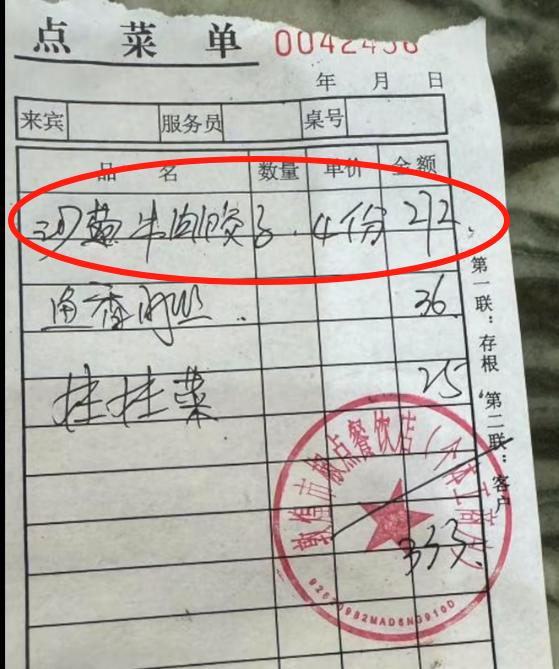 点菜单
年 月 日
来宾 服务员 桌号
品 名 数量 单价 金额
沙葱牛肉饺子 4份 272
鱼香肉丝 36
菜 25
333
第一联：存根 第二联：客户
敦煌市 点餐饮店（个体工商户）